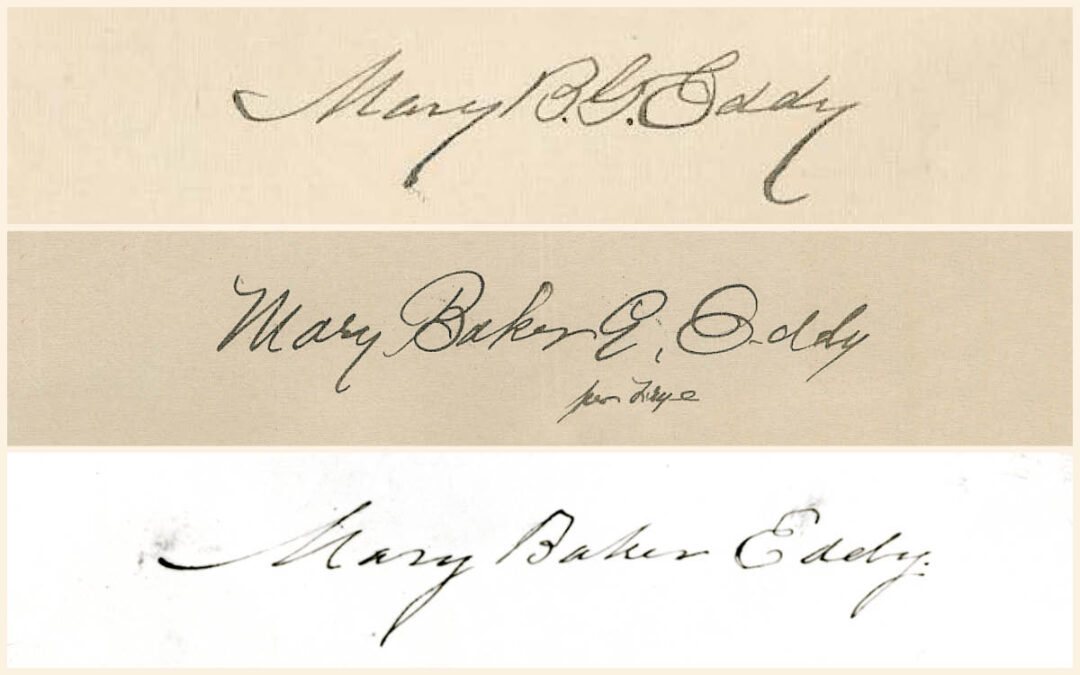 Mary B. G. Eddy
Mary Baker E, Eddy
per Frye
Mary Baker Eddy.